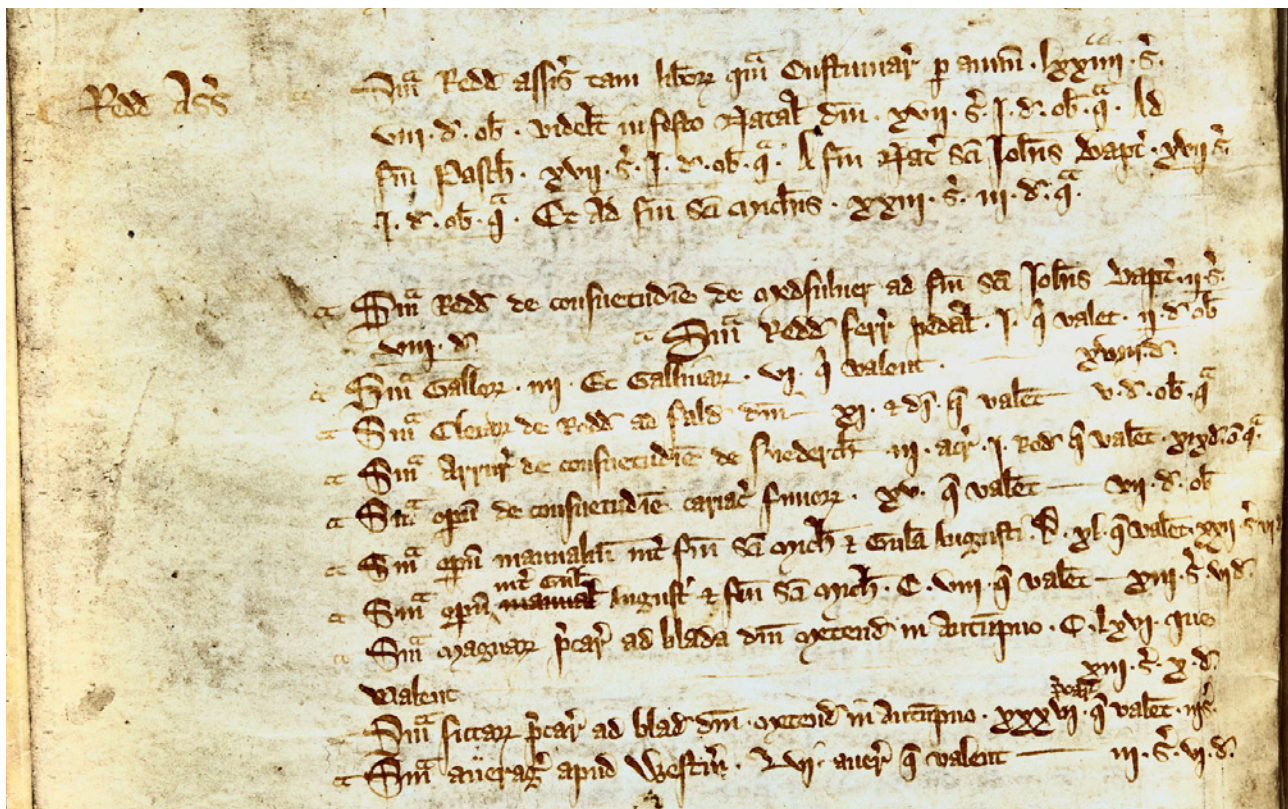 Redd Ass
Sma Redd assis tam liberor qm Custumar p annu . lxxiiii . s.
viii . d . ob . videlt in festo Natal dni . xvii . s . I . d . ob . qa . Ad
fm Pasch . xvii . s . I . d . ob . qa . A fm Nat sci Johis bapt . xvii s
.I . d . ob . qa . Et ad fm sci Michis . xxiii . s . iii . d . qa.
Sma Redd de consuetudie de Medsulver ad fm sci Johis bapt . ii s.
viii . d Sma Redd ferr pedal . I . q valet . ii . d . ob
Sma Gallor . iiii . Et Gallinar . vi . q valent . xviii . d.
Sma Cletar de Redd ad fald dni xi . & di . q valet v . d . ob . qa
Sma Arrur de consuetudie de . iii . acr . I . Rod q valet . xix d . o qa.
Sma opm de consuetudie cariac fimor . xv . q valet vii . d . ob
Sma opm manualiu int fm sci Mich & Gula Augusti . D . xl . q valet . xxii . s vi
Sma opm int Gul August & fm sci Mich . C . viii . q valet xiii . s . vi d.
Sma Magnar pcar ad blada dni Metend in Autupno . C . lxvi . que
valent xiii . s . x . d.
Sma siccar pcar ad blad dni . Metend in Autupno . xxxvii . pcar q valet . iii s.
Sma averag apud Westm . Lvi . aver q valent iii . s . vi . d.